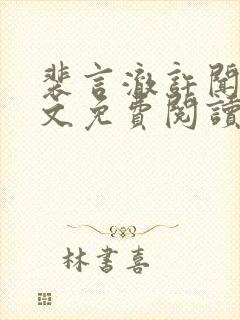 裴言澈許聞
文免費閱讀
林書喜